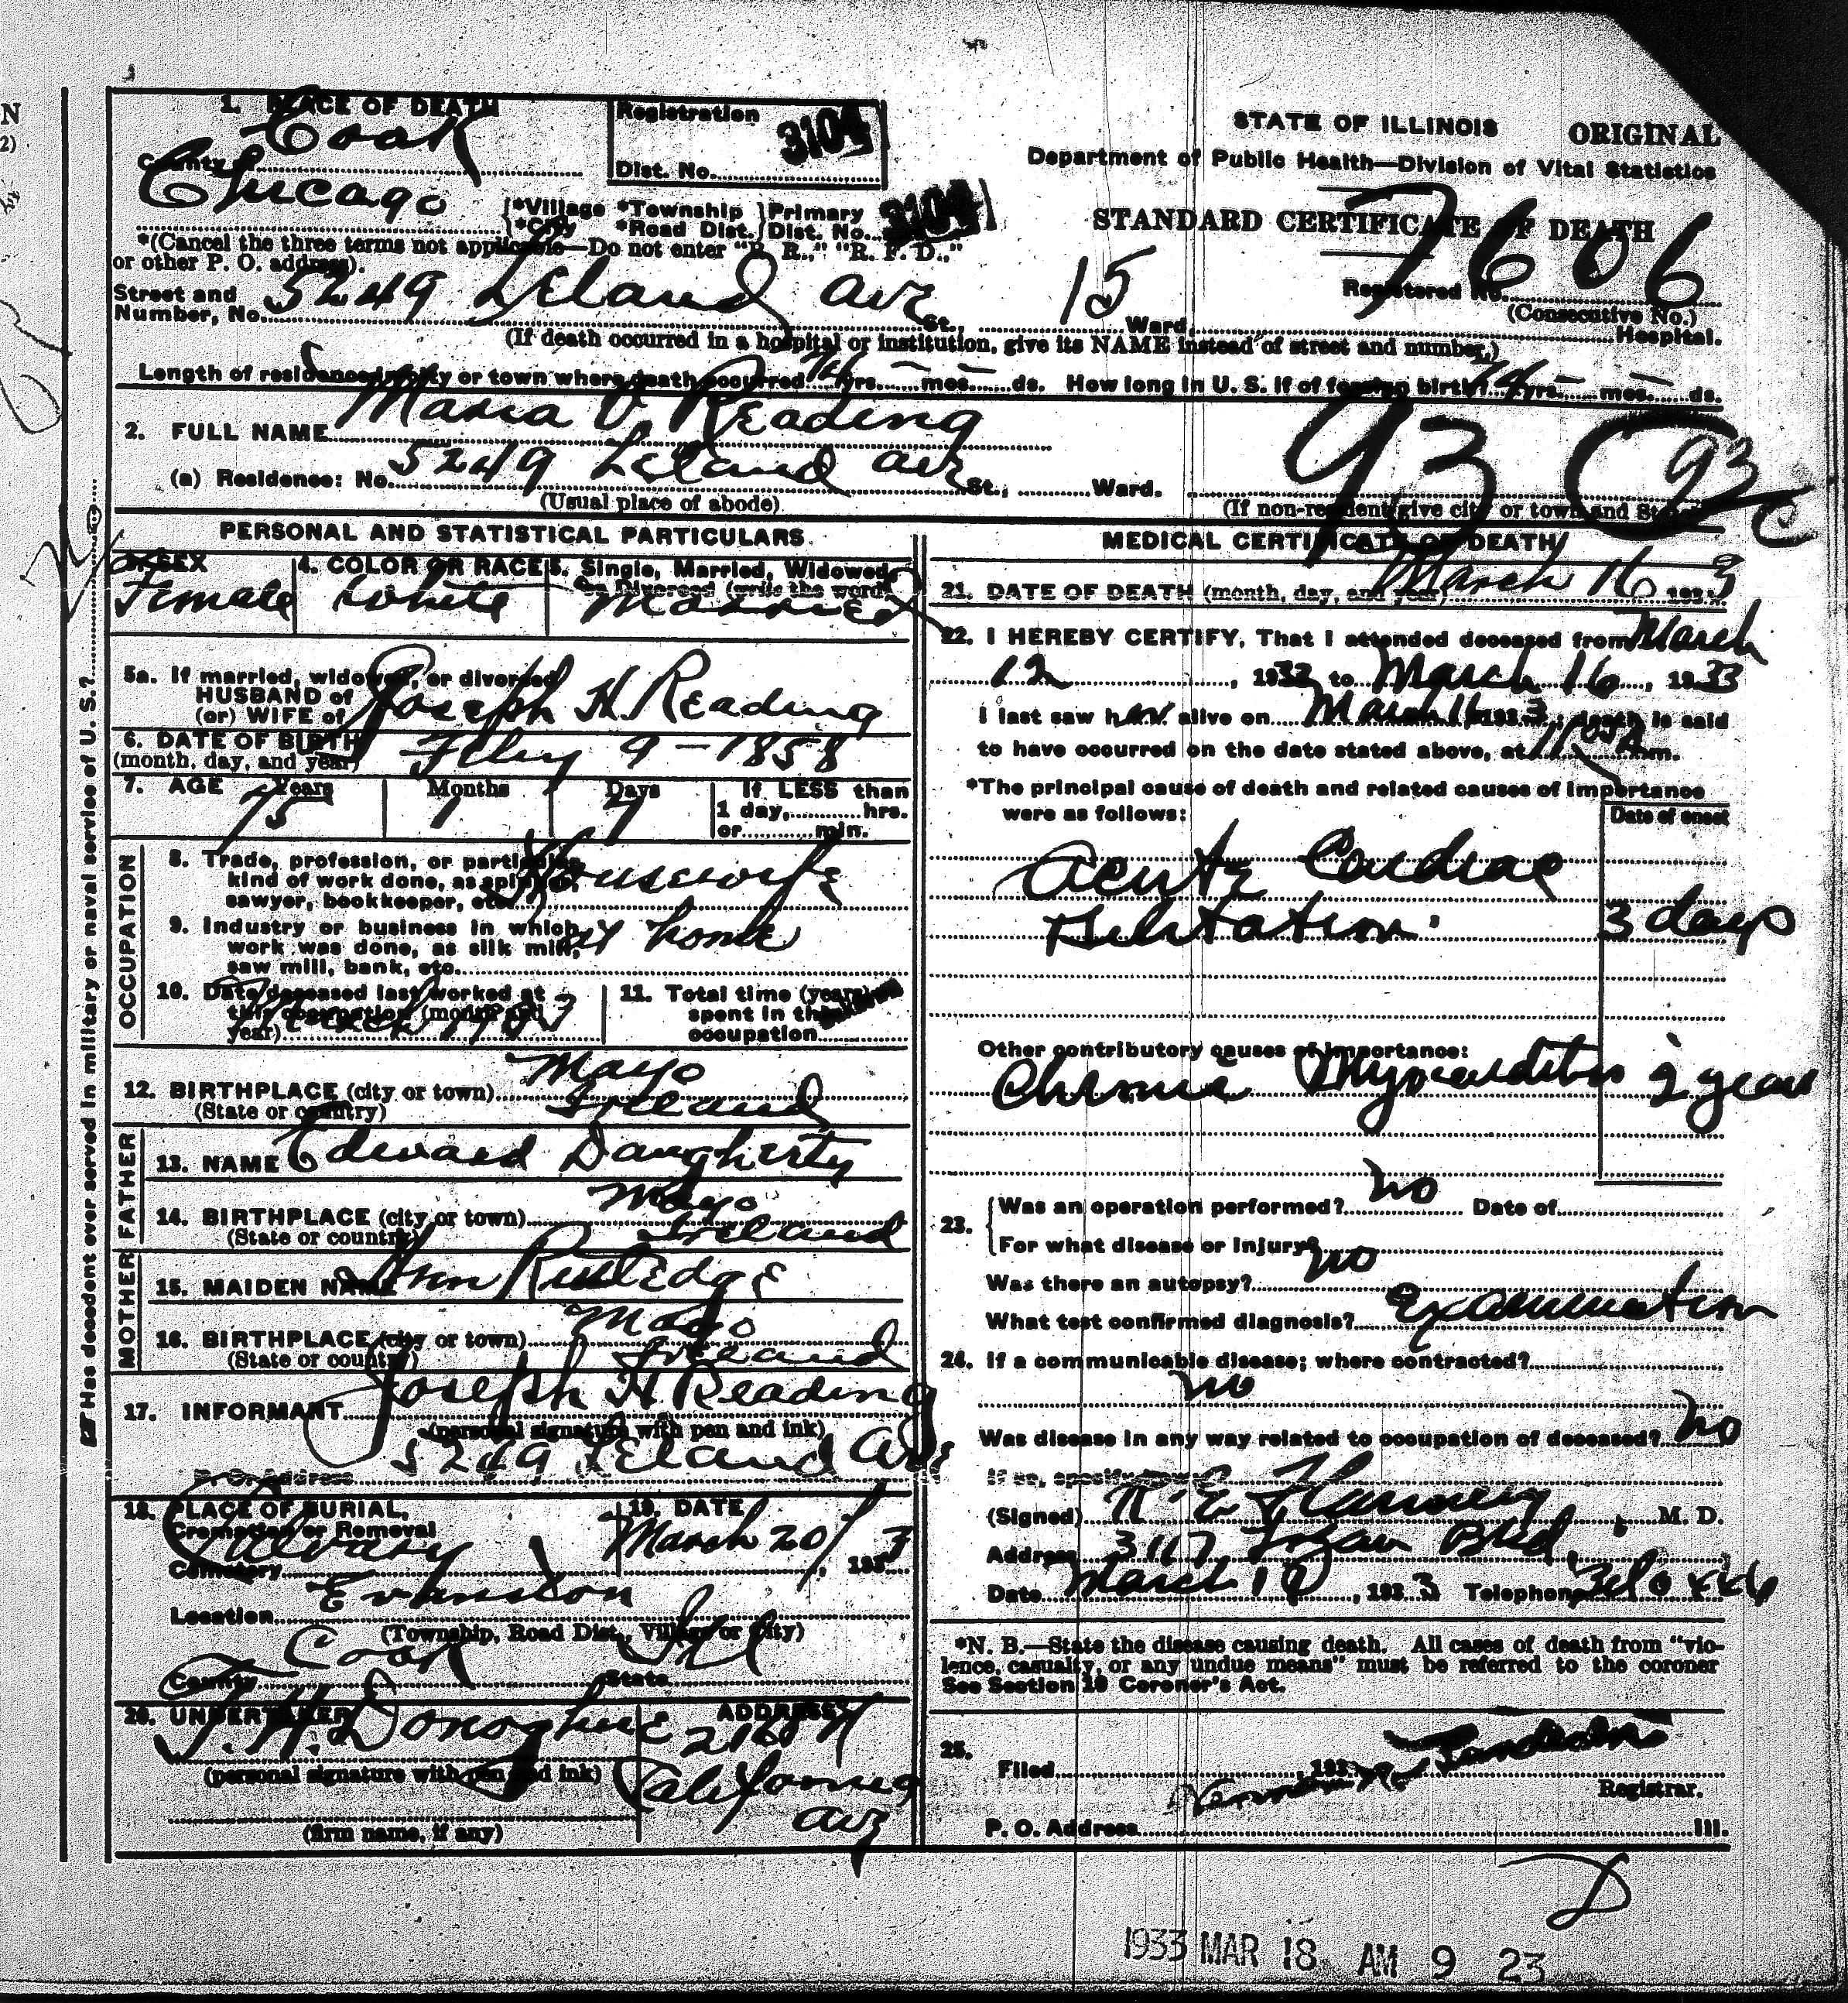 N
2)
1. PLACE OF DEATH
Cook
County
Registration
Dist. No. 3104
STATE OF ILLINOIS ORIGINAL
Department of Public Health—Division of Vital Statistics
STANDARD CERTIFICATE OF DEATH
Chicago
{*Village *Township }Primary
{*City *Road Dist.}Dist. No. 3104
*(Cancel the three terms not applicable—Do not enter "R. R.," "R. F. D.,"
or other P. O. address).
7606
Registered No.
(Consecutive No.)
Street and
Number, No. 5249 Leland Ave St., 15 Ward, Hospital.
(If death occurred in a hospital or institution, give its NAME instead of street and number.)
Length of residence in city or town where death occurred 74 yrs. — mos. ds. How long in U. S. if of foreign birth? 74 yrs. — mos. — ds.
2. FULL NAME Maria V Reading
93 93c
(a) Residence: No. 5249 Leland Ave St., Ward.
(Usual place of abode) (If non-resident give city or town and State)
PERSONAL AND STATISTICAL PARTICULARS.
3. SEX
Female
4. COLOR OR RACE
White
5. Single, Married, Widowed,
or Divorced (write the word)
Married
5a. If married, widowed, or divorced
HUSBAND of
(or) WIFE of Joseph H. Reading
6. DATE OF BIRTH
(month, day, and year) Feby 9 - 1858
7. AGE Years Months Days If LESS than
1 day, hrs.
or min.
75 1 7
OCCUPATION
8. Trade, profession, or particular
kind of work done, as spinner,
sawyer, bookkeeper, etc. Housewife
9. Industry or business in which
work was done, as silk mill,
saw mill, bank, etc. at home
10. Date deceased last worked at
this occupation (month and
year) March 1933
11. Total time (years)
spent in this
occupation
12. BIRTHPLACE (city or town) Mayo
(State or country) Ireland
FATHER
13. NAME Edward Daugherty
14. BIRTHPLACE (city or town) Mayo
(State or country) Ireland
MOTHER
15. MAIDEN NAME Ann Rutledge
16. BIRTHPLACE (city or town) Mayo
(State or country) Ireland
17. INFORMANT Joseph H Reading
(personal signature with pen and ink)
P. O. Address 5249 Leland Ave
18. PLACE OF BURIAL,
Cremation or Removal
Cemetery Calvary
19. DATE
March 20, 1933
Location Evanston
(Township, Road Dist., Village or City)
County Cook State Ill
20. UNDERTAKER
J. H. Donoghue
(personal signature with pen and ink)
(firm name, if any)
ADDRESS
2160 N
California
Ave
Has decedent ever served in military or naval service of U. S.?
MEDICAL CERTIFICATE OF DEATH
21. DATE OF DEATH (month, day, and year) March 16 1933
22. I HEREBY CERTIFY, That I attended deceased from March
12, 1933 to March 16, 1933
I last saw her alive on March 16, 1933; death is said
to have occurred on the date stated above, at 11 05 A m.
*The principal cause of death and related causes of importance
were as follows:
Date of onset
Acute Cardiac
Dilatation. 3 days
Other contributory causes of importance:
Chronic Myocarditis 2 years
23. {Was an operation performed? no Date of
{For what disease or injury?
Was there an autopsy? no
What test confirmed diagnosis? Examination
24. If a communicable disease; where contracted?
no
Was disease in any way related to occupation of deceased? no
If so, specify how
(Signed) Flannery M. D.
Address 3117 Logan Blvd.
Date March 1933 Telephone
*N. B.—State the disease causing death. All cases of death from "vio-
lence, casualty, or any undue means" must be referred to the coroner
See Section 10 Coroner's Act.
25.
Filed , 193 Herman N. Bundesen
Registrar.
P. O. Address Ill.
D
1933 MAR 18 AM 9 23